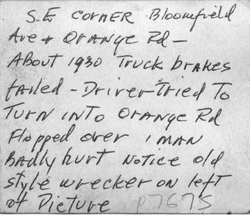 S.E CORNER Bloomfield
Ave + ORANGE Rd -
About 1930 TRUCK BRAKES
FAILED - DRIVER TRIED TO
TURN INTO ORANGE Rd
Flopped over 1 MAN
BADLY HURT NOTICE old
style wrecker on left
of Picture P7675